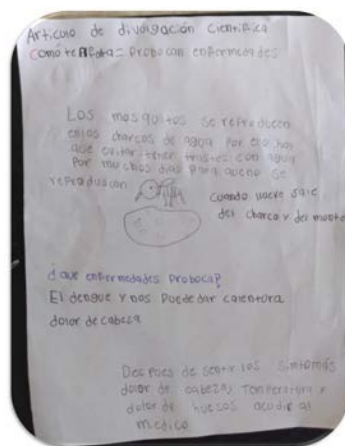 Articulo de divulgación Cientifica
Comó te Afecta= Probocan enfermedades
Los mosquitos se reproducen
en los charcos de agua por eso hay
que evitar tener trastes con agua
Por muchos dias para queno se
reproduscan
Cuando llueve sale
del charco y del monte
¿que enfermedades Proboca?
El dengue y nos Puede dar calentura
dolor de cabeza
Des pues de sentir los simtomás
dolor de cabeza, Temperatura y
dolor de huesos acudir al
medico